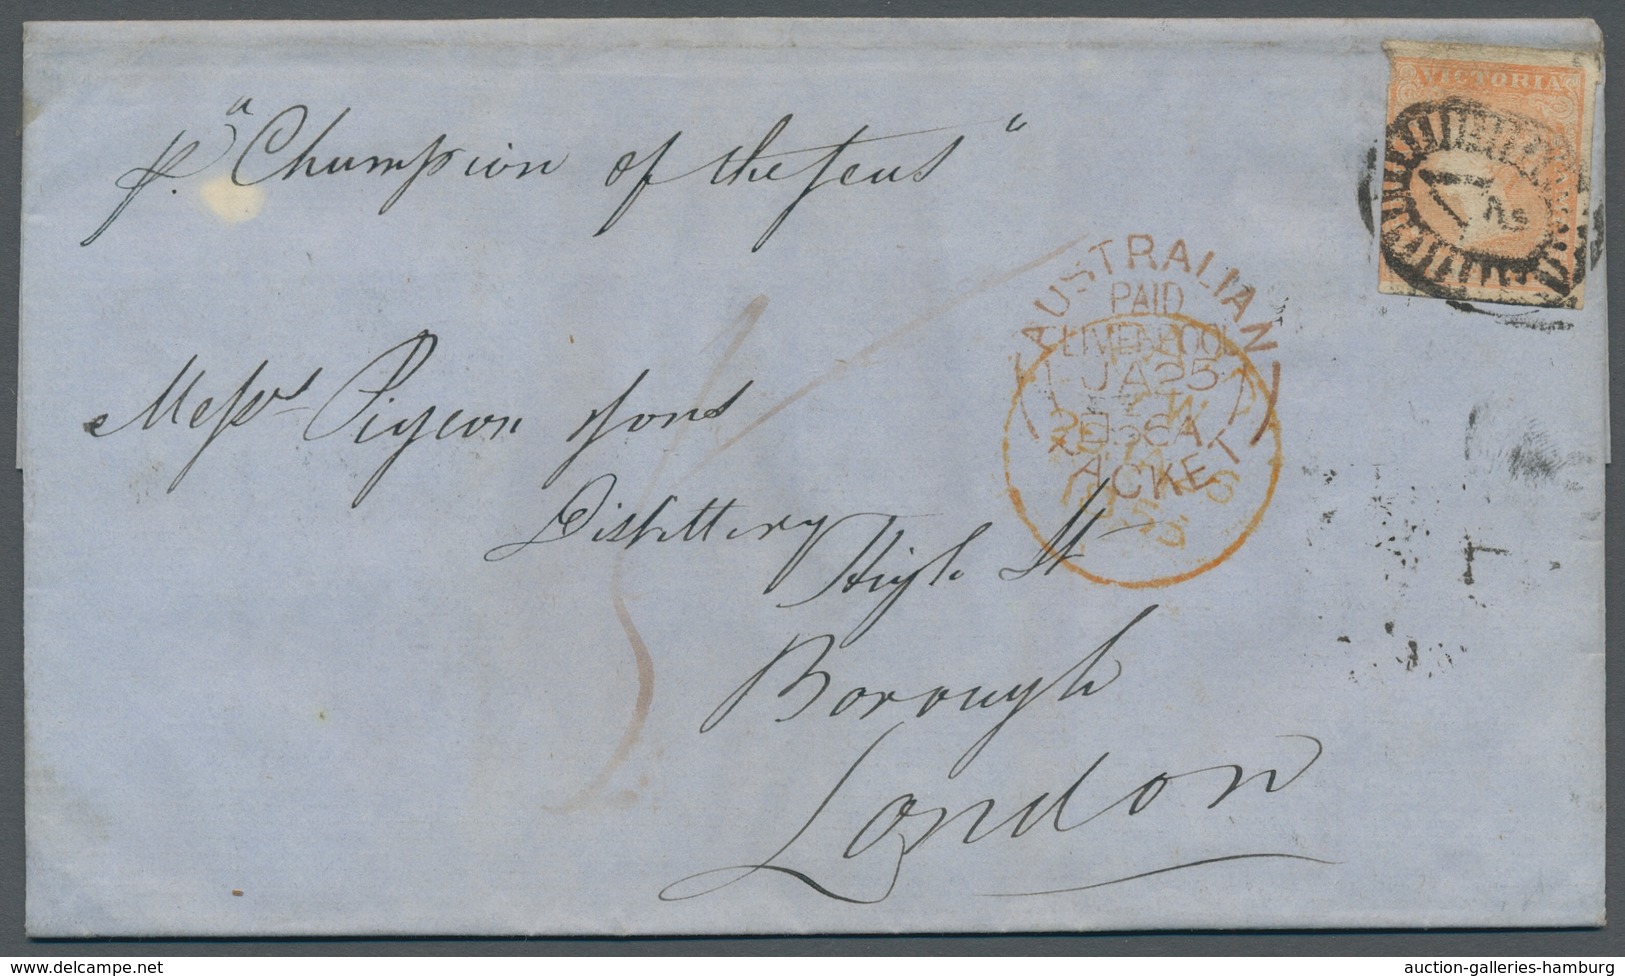 VICTORIA
p. "Champion of the Seas"
AUSTRALIAN
PAID
LIVERPOOL
JA25
56A
PACKET
Messrs Pigeon & Sons
Distillery
High St
Borough
London
auction-galleries-hamburg